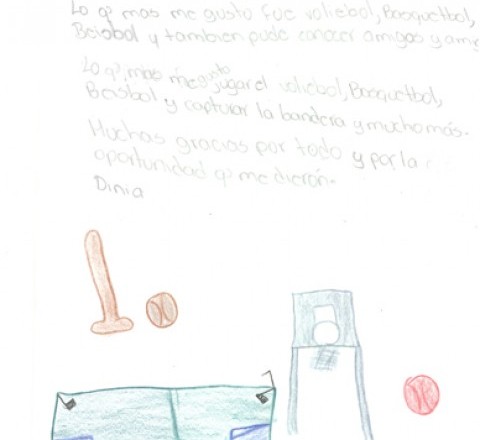 Lo q' mas me gusto fue voliebol, Basquetbol,
Beisbol y tambien pude conocer amigos y
Lo q', mas me gusto jugar el voliebol, Basquetbol,
Beisbol y capturar la bandera y mucho más.
Muchas gracias por todo y por la
oportunidad q' me dieron.
Dinia